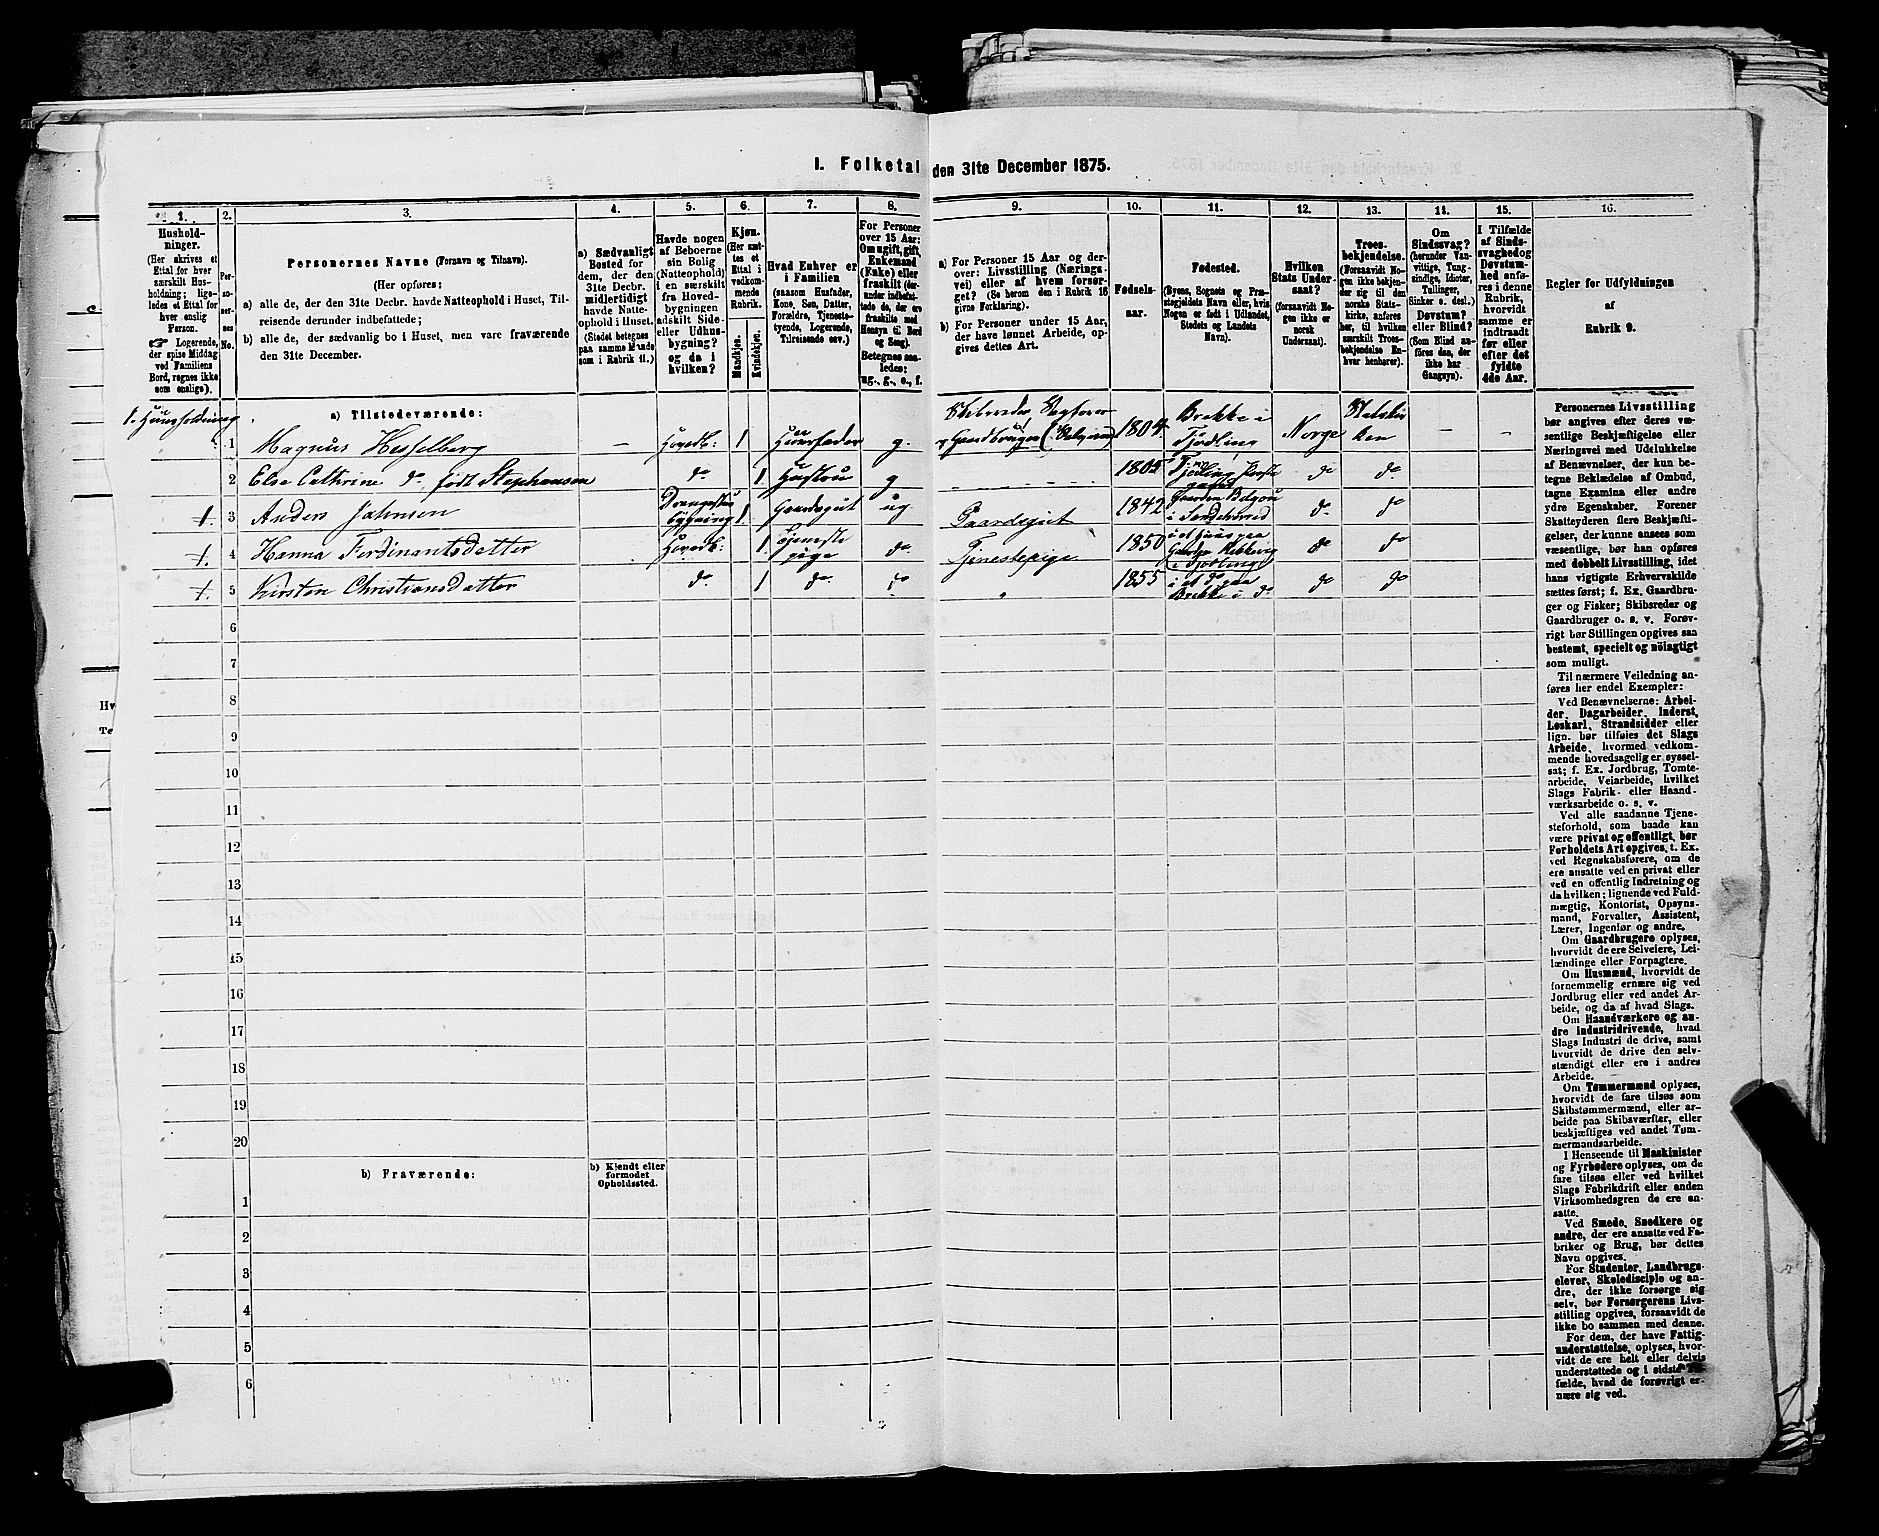 I. Folketal den 31te December 1875.
1. 2. 3. 4. 5. 6. 7. 8. 9. 10. 11. 12. 13. 14. 15. 16.
Hushold-
ninger.
(Her skrives et
Ettal for hver
særskilt Hus-
holdning; lige-
ledes et Ettal for
hver enslig
Person.
☞ Logerende,
der spise Middag
ved Familiens
Bord, regnes ikke
som enslige).
Per-
so-
ner-
nes
No.
Personernes Navne (Fornavn og Tilnavn).
(Her opføres:
a) alle de, der den 31te Decbr. havde Natteophold i Huset, Til-
reisende derunder indbefattede;
b) alle de, der sædvanlig bo i Huset, men vare fraværende
den 31te December.
a) Sædvanligt
Bosted for
dem, der den
31te Decbr.
midlertidigt
havde Natte-
ophold i Huset.
(Stedet betegnes
paa samme Maade
som i Rubrik 11.)
Havde nogen
af Beboerne
sin Bolig
(Natteophold)
i en særskilt
fra Hoved-
bygningen
adskilt Side-
eller Udhus-
bygning?
og da i
hvilken?
Kjøn.
(Her sæt-
tes et
Ettal i
vedkom-
mende
Rubrik.
Mandkjøn.
Kvindekjøn.
Hvad Enhver er
i Familien
(saasom Husfader,
Kone, Søn, Datter,
Forældre, Tjeneste-
tyende, Logerende,
Tilreisende osv.)
For Personer
over 15 Aar:
Om ugift, gift,
Enkemand
(Enke) eller
fraskilt (der-
under indbefat-
tede de, der ere
fraskilte med
Hensyn til Bord
og Seng).
Betegnes saa-
ledes:
ug., g., e., f.
a) For Personer 15 Aar og der-
over: Livsstilling (Nærings-
vei) eller af hvem forsør-
get? (Se herom den i Rubrik 16
givne Forklaring).
b) For Personer under 15 Aar,
der have lønnet Arbeide, op-
gives dettes Art.
Fødsels-
aar.
Fødested.
(Byens, Sognets og Præ-
stegjeldets Navn eller, hvis
Nogen er født i Udlandet,
Stedets og Landets
Navn).
Hvilken
Stats Under-
saat?
(forsaavidt No-
gen ikke er
norsk
Undersaat).
Troes-
bekjendelse.
(Forsaavidt No-
gen ikke bekjen-
der sig til den
norske Stats-
kirke, anføres
her, til hvilken
særskilt Troes-
bekjendelse En-
hver henhører).
Om
Sindssvag?
(herunder Van-
vittige, Tung-
sindige, Idioter,
Tullinger,
Sinker o. desl.)
Døvstum?
eller Blind?
(Som Blind an-
føres den, der
ikke har
Gangsyn).
I Tilfælde
af Sinds-
svaghed og
Døvstum-
hed anfø-
res i denne
Rubrik,
hvorvidt
samme er
indtraadt
før eller
efter det
fyldte
4de Aar.
Regler for Udfyldningen
af
Rubrik 9.
a) Tilstedeværende:
1. Huusholdning
1 Magnus Hesselberg — Hovedb: 1 Huusfader g. Skibsreder, Skogeier Gaardbruger (Selveier) 1804 Brekke i Tjødling Norge Statskirken — —
2 Else Cathrine do født Stephansen do 1 Hustru g — — — — — — 1805 Tjødling Præstegaard do do
1. 3 Anders Johnsen Drengestubygning 1. Gaardsgut ug. Gaardsgut 1842 Gaarden i Sandeherred do do
1. 4 Hanna Ferdinantsdatter Hovedb: 1 Tjenestepige do Tjenestepige 1850 i et Huus paa Gaarden i Tjødling do do
1. 5 Kirsten Christiansdatter do 1 do do " 1855 i et do paa Brekke i do do do
6
7
8
9
10
11
12
13
14
15
16
17
18
19
20
b) Fraværende:
b) Kjendt eller
formodet
Opholdssted.
1
2
3
4
5
6
Personernes Livsstilling
bør angives efter deres væ-
sentlige Beskjæftigelse eller
Næringsvei med Udelukkelse
af Benævnelser, der kun be-
tegne Beklædelse af Ombud,
tagne Examina eller andre
ydre Egenskaber. Forener
Skatteyderen flere Beskjæfti-
gelser, der kunne ansees som
væsentlige, bør han opføres
med dobbelt Livsstilling, idet
hans vigtigste Erhvervskilde
sættes først; f. Ex. Gaardbru-
ger og Fisker; Skibsreder og
Gaardbruger o. s. v. Forøv-
rigt bør Stillingen opgives saa
bestemt, specielt og nøiagtigt
som muligt.
Til nærmere Veiledning an-
føres her endel Exempler:
Ved Benævnelserne: Arbei-
der, Dagarbeider, Inderst,
Løskarl, Strandsidder eller
lign. bør tilføies det Slags
Arbeide, hvormed vedkom-
mende hovedsagelig er syssel-
sat; f. Ex. Jordbrug, Tomte-
arbeide, Veiarbeide, hvilket
Slags Fabrik- eller Haand-
værksarbeide o. s. v.
Ved alle saadanne Tjene-
steforhold, som baade kan
være privat og offentligt, bør
Forholdets Art opgives, t. Ex.
ved Regnskabsførere, om de
ere ansatte ved en privat eller
ved en offentlig Indretning og
da hvilken; lignende ved Fuld-
mægtig, Kontorist, Opsyns-
mand, Forvalter, Assistent,
Lærer, Ingeniør og andre.
Om Gaardbrugere oplyses,
hvorvidt de ere Selveiere, Lei-
lændinge eller Forpagtere.
Om Husmænd, hvorvidt de
fornemmelig ernære sig ved
Jordbrug eller ved andet Ar-
beide, og da af hvad Slags.
Om Haandværkere og an-
dre Industridrivende, hvad
Slags Industri de drive, samt
hvorvidt de drive den selv-
stændigt eller ere i andres
Arbeide.
Om Tømmermænd oplyses,
hvorvidt de fare tilsøs som
Skibstømmermænd, eller ar-
beide paa Skibsværfter, eller
beskjæftiges ved andet Tøm-
mermandsarbeide.
I Henseende til Maskinister
og Fyrbødere oplyses, om de
fare tilsøs eller ved hvilket
Slags Fabrikdrift eller anden
Virksomhedsgren de ere an-
satte.
Ved Smede, Snedkere og
andre, der ere ansatte ved Fa-
briker og Brug, bør dettes
Navn opgives.
For Studenter, Landbrugs-
elever, Skoledisciple og an-
dre, der ikke forsørge sig
selv, bør Forsørgerens Livs-
stilling opgives, forsaavidt de
ikke bo sammen med denne.
For dem, der have Fattig-
understøttelse, oplyses, hvor-
vidt de ere helt eller delvis
understøttede og i sidste Til-
fælde, hvad de forøvrigt er-
nære sig ved.